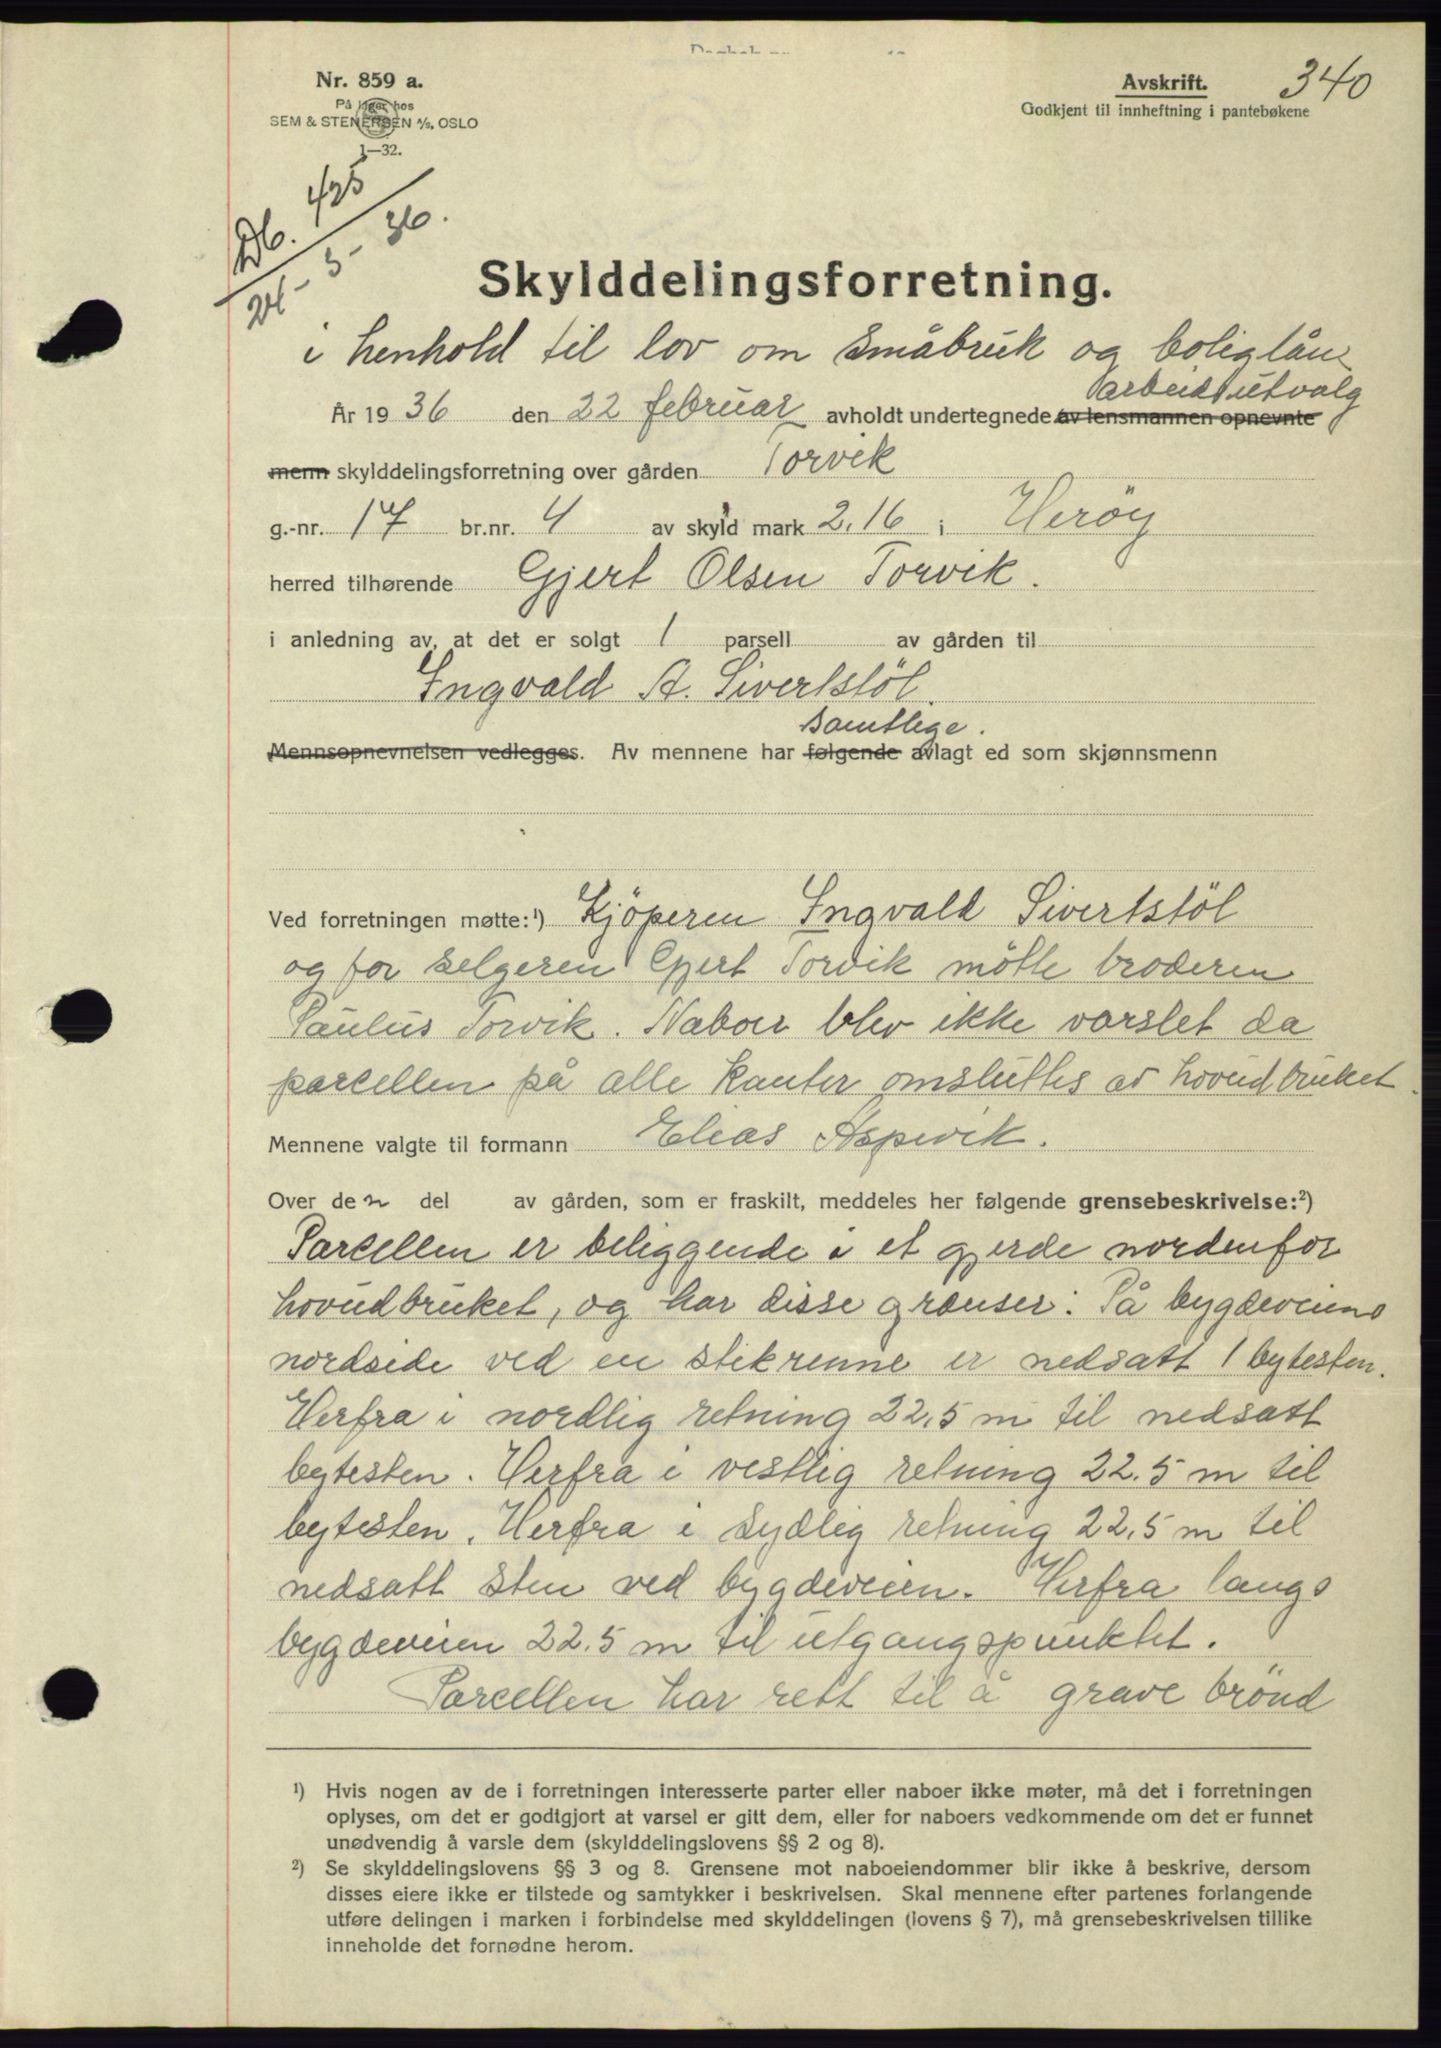 Nr. 859 a.
På lager hos
SEM & STENERSEN A/S, OSLO
1—32.
Avskrift.
Godkjent til innheftning i pantebøkene
340
Db. 425
24-3-36.
Skylddelingsforretning.
i henhold til lov om småbruk og boliglån
arbeidsutvalg
År 1936 den 22 februar avholdt undertegnede av lensmannen opnevnte
menn skylddelingsforretning over gården Torvik
g.-nr. 17 br.nr. 4 av skyld mark 2,16 i Herøy
herred tilhørende Gjert Olsen Torvik.
i anledning av, at det er solgt 1 parsell av gården til
Ingvald A. Sivertstöl.
samtlege.
Mennsopnevnelsen vedlegges. Av mennene har følgende avlagt ed som skjønnsmenn
Ved forretningen møtte:¹) Kjöperen Ingvald Sivertstöl
og for selgeren Gjert Torvik mötte broderen
Paulus Torvik. Naboer blev ikke varslet da
parcellen på alle kanter omsluttes av hovudbruket.
Mennene valgte til formann Elias Aspevik.
Over den del av gården, som er fraskilt, meddeles her følgende grensebeskrivelse:²)
Parcellen er beliggende i et gjerde nordenfor
hovudbruket, og har disse grænser: På bygdeveiens
nordside ved en stikrenne er nedsatt 1 bytesten.
Herfra i nordlig retning 22,5 m til nedsatt
bytesten. Herfra i vestlig retning 22.5 m til
bytesten. Herfra i sydlig retning 22,5 m til
nedsatt sten ved bygdeveien. Herfra langs
bygdeveien 22.5 m til utgangspunktet.
Parcellen har rett til å grave brönd
¹) Hvis nogen av de i forretningen interesserte parter eller naboer ikke møter, må det i forretningen
oplyses, om det er godtgjort at varsel er gitt dem, eller for naboers vedkommende om det er funnet
unødvendig å varsle dem (skylddelingslovens §§ 2 og 8).
²) Se skylddelingslovens §§ 3 og 8. Grensene mot naboeiendommer blir ikke å beskrive, dersom
disses eiere ikke er tilstede og samtykker i beskrivelsen. Skal mennene efter partenes forlangende
utføre delingen i marken i forbindelse med skylddelingen (lovens § 7), må grensebeskrivelsen tillike
inneholde det fornødne herom.